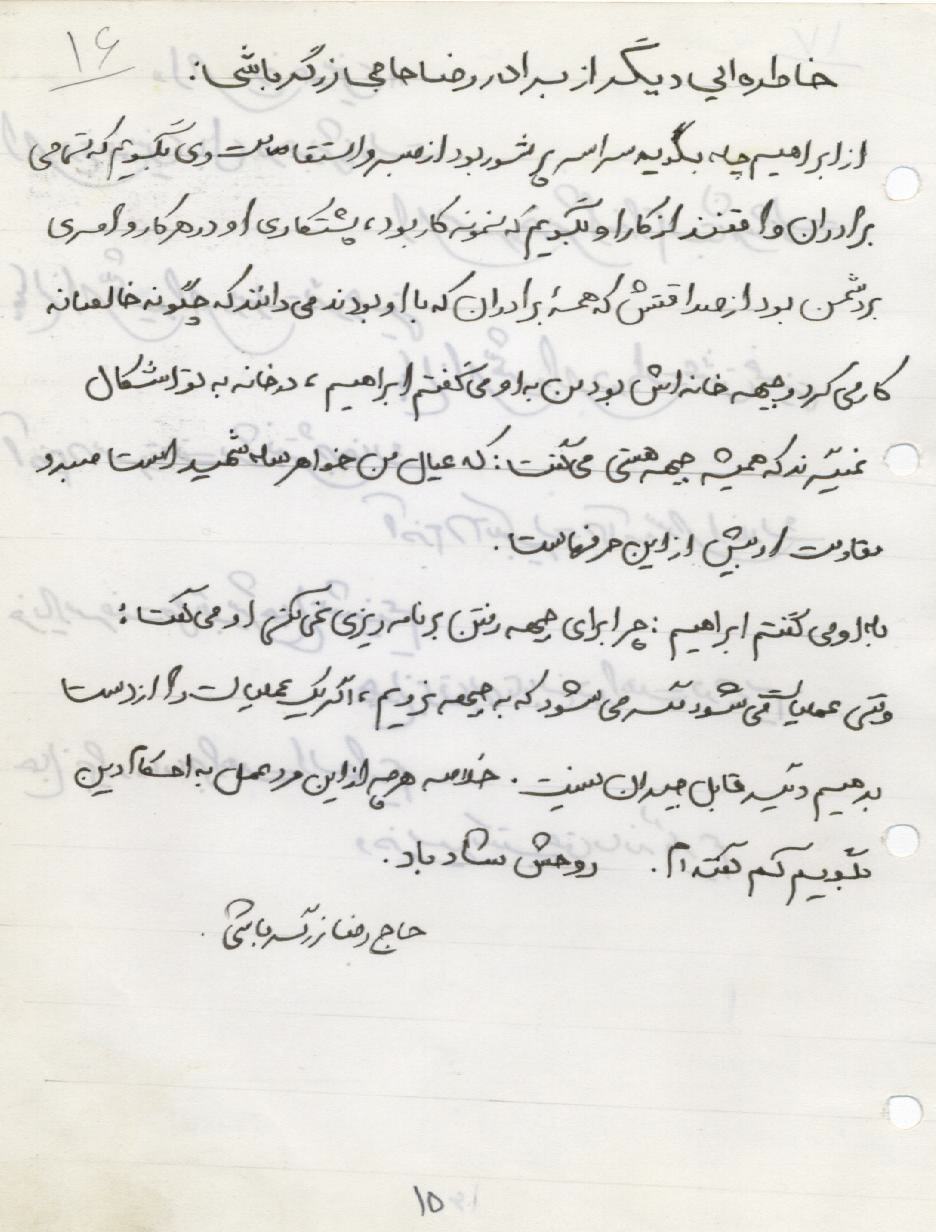 ۱۶
خاطره ایی دیگر از برادر رضا حاجی زرگر باشی:
از ابراهیم چه بگویم سراسر پر شور بود از صبر و استقامت وی بگویم که تمامی
برادران واقفند از کار او بگویم که نمونه کار بود، پشتکاری او در هر کار و امری
بر دشمن بود از صداقتش که همهٔ برادران که با او بودند می دانند که چگونه خالصانه
کار می کرد و جبهه خانه اش بود من به او می گفتم ابراهیم، در خانه به تو اشکال
نمیگیرند که همیشه جبهه هستی می گفت: که عیال من خواهر سه شهید است صبر و
مقاومت او بیش از این حرفهاست.
به او می گفتم ابراهیم: چرا برای جبهه رفتن برنامه ریزی نمی کنی او می گفت:
وقتی عملیات می شود مگر می شود که به جبهه نرویم، اگر یک عملیات را از دست
بدهیم دیگر قابل جبران نیست. خلاصه هر چه از این مرد عمل به احکام دین
بگویم کم گفته ام. روحش شاد باد.
حاج رضا زرگر باشی.
۱۵